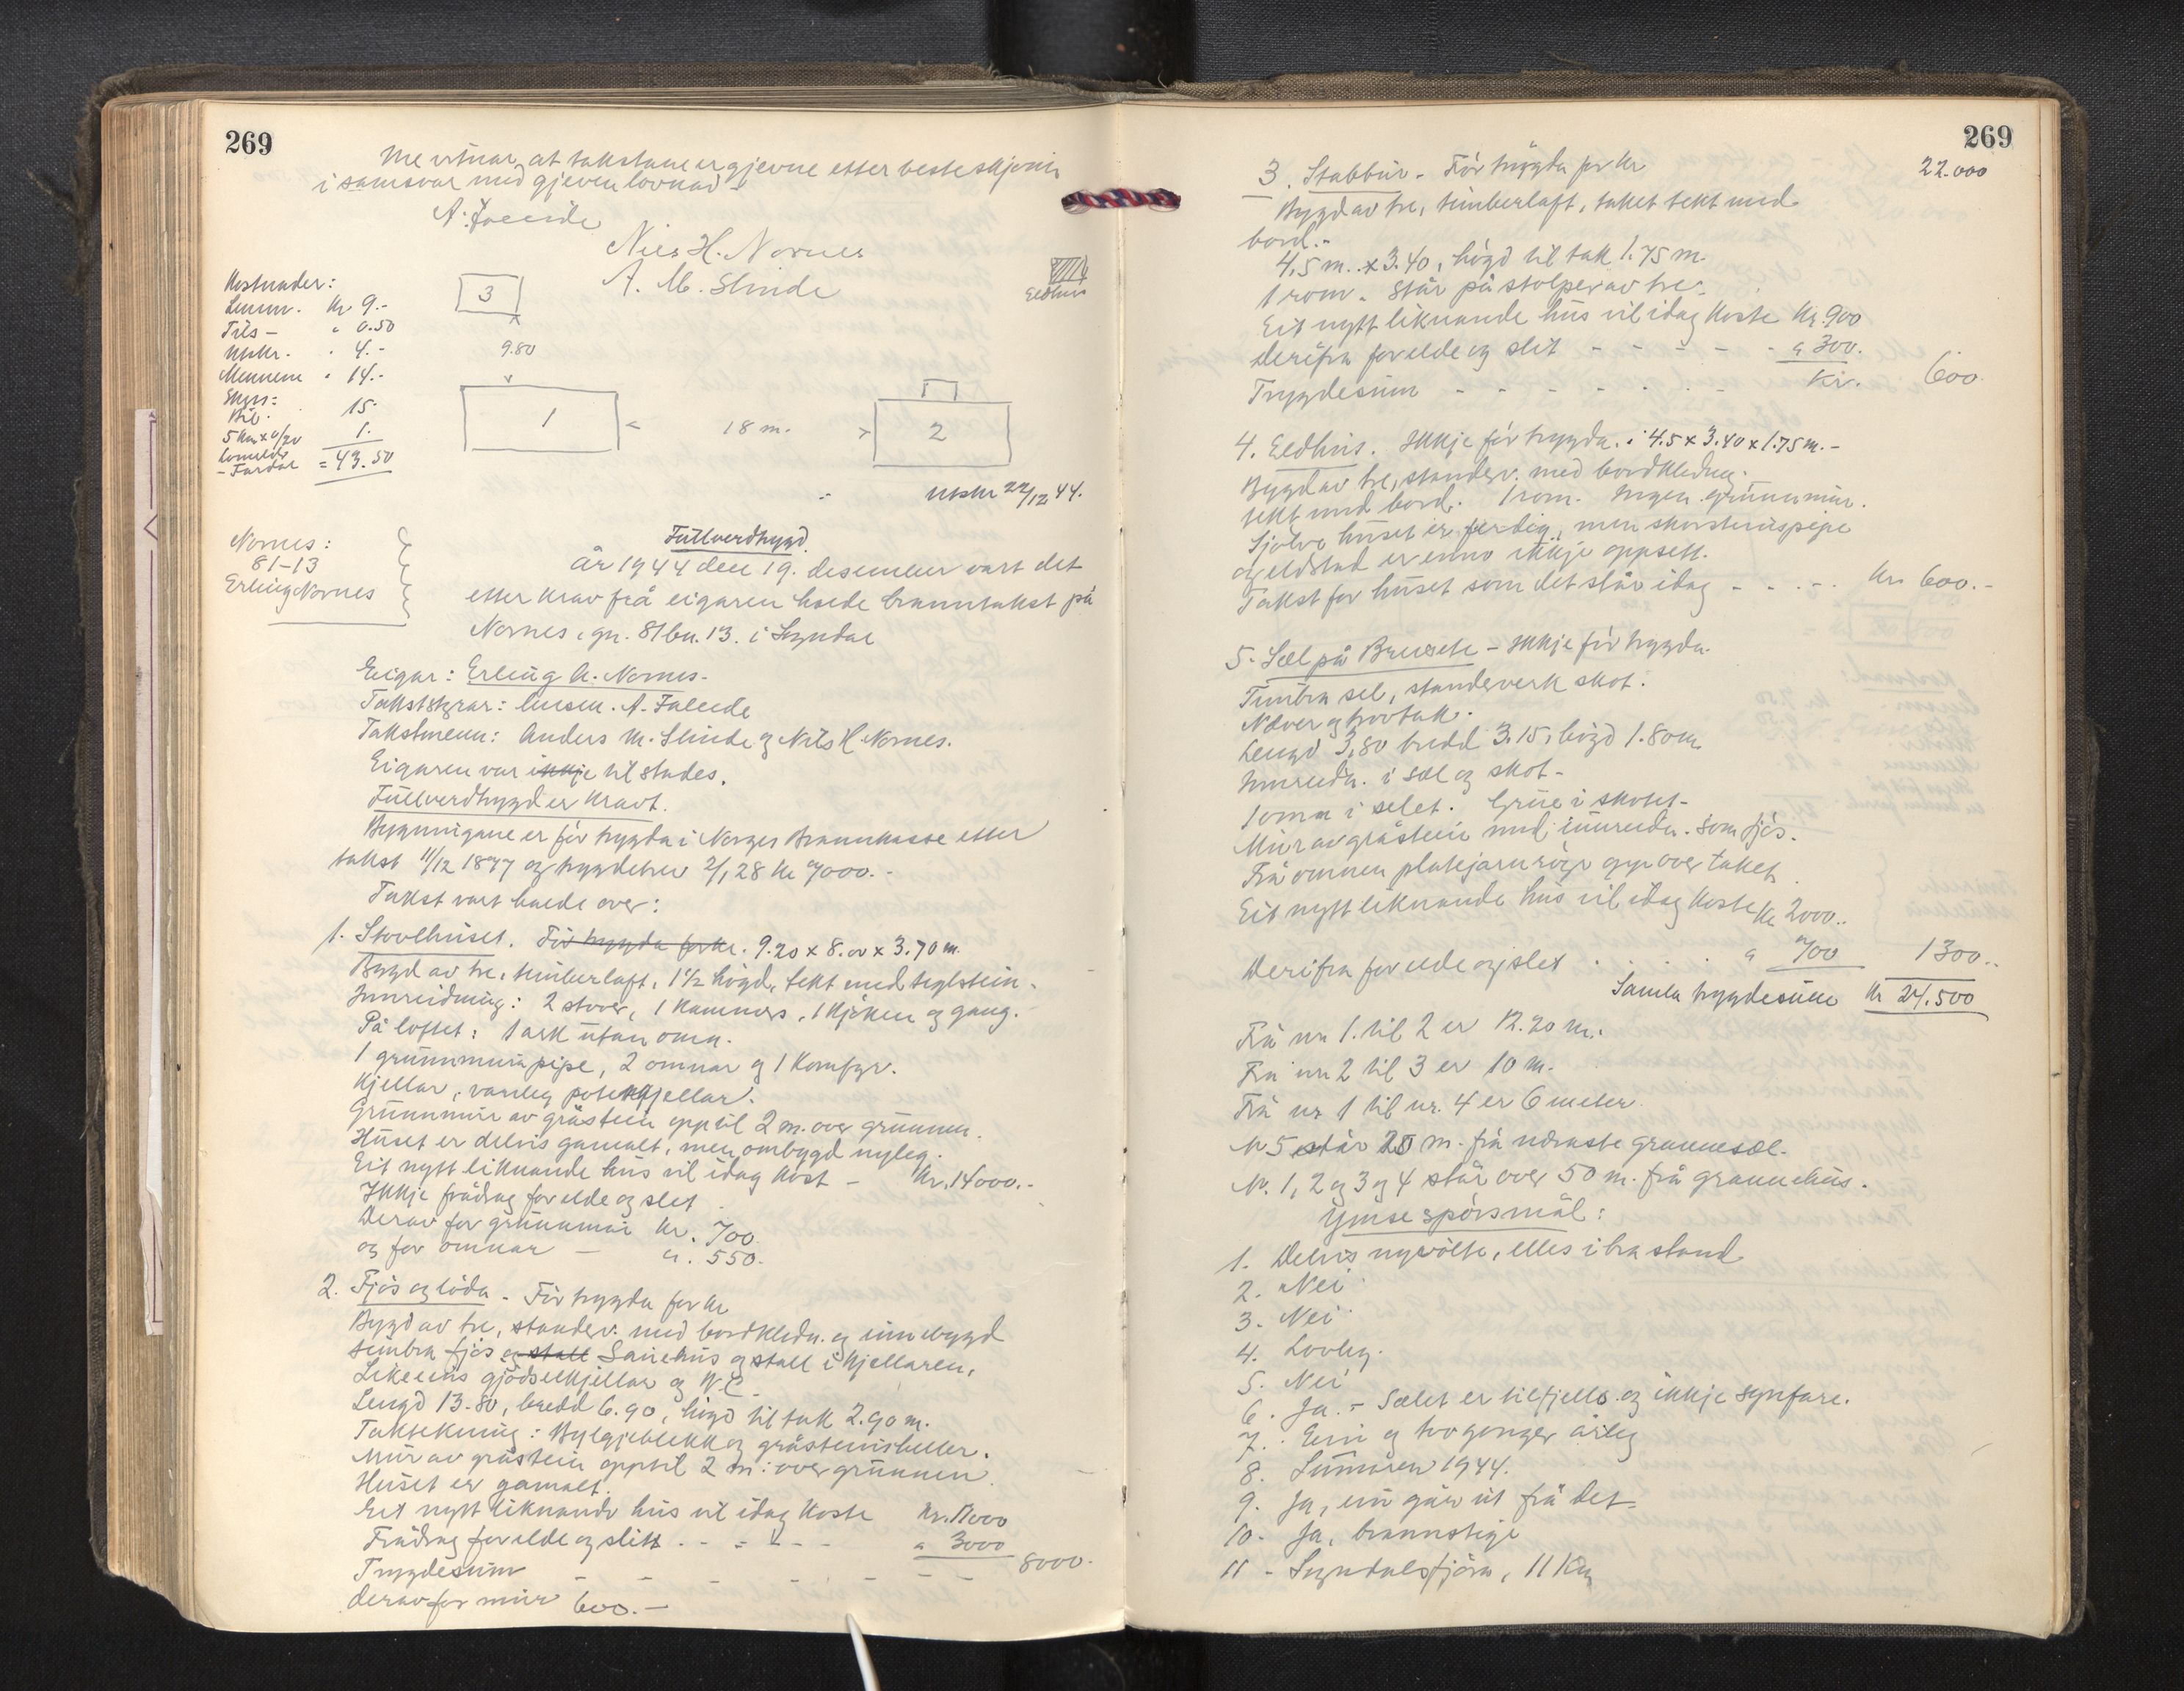 269
Me vitnar, at takstane er gjevne etter beste skjønn
i samsvar med gjeven lovnad -
A. Faleide
Nils H. Nornes
A. M. Slinde
Kostnader:
Lensm. Kr 9.-
Tils - " 0.50
Utskr. " 4.-
Mennene " 14.-
Skyss:
Bil. 15.
5 km x 0/20 1.
= 43.50
3
9.80
1
18 m.
2
Eldhus
Utskr 22/12 44.
Nornes:
81-13
Erling Nornes
Fullverdtrygd.
År 1944 den 19. desember vart det
etter krav frå eigaren halde branntakst på
Nornes, gn. 81 bn. 13. i Sogndal
Eigar: Erling A. Nornes.
Takststyrar: lensm. A. Faleide
Takstmenn: Anders M. Slinde og Nils H. Nornes.
Eigaren var ikkje til stades.
Fullverdtrygd er kravt.
Bygningane er før trygda i Norges Brannkasse etter
takst 11/12 1877 og trygdebrev 2/1 28 kr 7000.-
Takst vart halde over:
1. Stovehuset. Før trygda for kr. 9.20 x 8.00 x 3.70 m.
Bygd av tre, timberlaft, 1 1/2 høgd, tekt med teglstein.
Innreidning: 2 stover, 1 kammers, 1 kjøken og gang.
På loftet: 1 ark utan omn.
1 grunnmurapipe, 2 omnar og 1 komfyr.
Kjellar, vanleg potetkjellar.
Grunnmur av gråstein opptil 2 m. over grunnen.
Huset er delvis gamalt, men ombygd nyleg.
Eit nytt liknande hus vil idag kost - Kr. 14000.-
Ikkje frådrag for elde og slet
Derav for grunnmur kr. 700.
og for omnar - " . 550.
2. Fjøs og løda - Før trygda for kr
Bygd av tre, standerv. med bordkledn. og innebygd
timbra fjøs og stall Sauehus og stall i kjellaren.
Likeeins gjødselkjellar og W.C.
Lengd 13.80, bredd 6.90, høgd til tak 2.90 m.
Taktekning: Bylgjeblekk og gråsteinsheller.
Mur av gråstein opptil 2 m. over grunnen.
Huset er gamalt.
Eit nytt liknande hus vil idag koste Kr. 11000
Frådrag for elde og slitt . - - - - - " 3000
Trygdesum - - - - - - - 8000.
Derav for mur 600.-
269
3. Stabbur - Før trygda for kr 22.000
Bygd av tre, timberlaft, taket tekt med
bord.-
4,5 m. x 3.40, høgd til tak 1.75 m.
1 rom. Står på stolper av tre.
Eit nytt liknande hus vil idag koste Kr. 900
Derifra for elde og slit - - - - - " 300.
Trygdesum - - - - - - - Kr. 600.
4. Eldhus. Ikkje før trygda. 4.5 x 3.40 x 1.75 m.-
Bygd av tre, standerv. med bordkledning.
tekt med bord. 1 rom. Ingen grunnmur.
Sjølve huset er ferdig, men skorsteinspipe
og eldstad er enno ikkje oppsett.
Takst for huset som det står idag - - - - Kr. 600.-
5. Sæl på - Ikkje før trygda.
Timbra sel, standerverk skot.
Næver og torvtak.
Lengd 3,80 bredd 3.15, høgd 1.80 m.
Innreidn. i sæl og skot -
1 omn i selet. Grue i skotet -
Mur av gråstein med innreidn. som fjøs.
Frå omnen platejarnrøyr opp over taket.
Eit nytt liknande hus vil idag koste Kr 2000..
Derifra for elde og slet . . . . " 700 1300..
Samla trygdesum Kr 24.500
Frå nr 1. til 2 er 12.20 m.
Frå nr 2 til 3 er 10 m.
Frå nr 1 til nr. 4 er 6 meter.
Nr 5 står 20 m. frå næraste grannesæl.
Nr. 1, 2 og 3 og 4 står over 50 m. frå grannehus.
Ymse spørsmål:
1. Delvis nyvølte, elles i bra stand
2. Nei
3. Nei
4. Lovleg.
5. Nei
6. Ja. - Sælet er til fjells og ikkje synfare.
7. Ein og two gonger årleg
8. Sumaren 1944.
9. Ja, ein går ut frå det.
10. Ja, brannstige
11 - Sogndalsfjøra, 11 Km